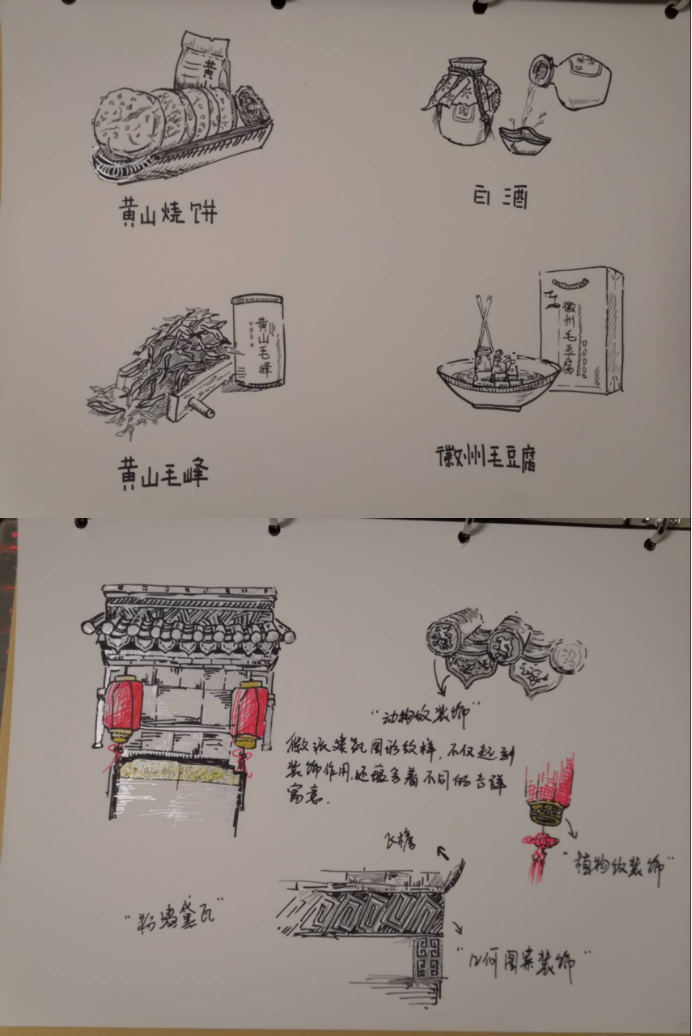 黄山
黄山烧饼
酒
白酒
黄山毛峰
黄山毛峰
徽州毛豆腐
徽州毛豆腐
"动物纹装饰"
徽派建筑图的纹样，不仅起到
装饰作用，还蕴含着不同的吉祥
寓意.
飞檐
"植物纹装饰"
"粉墙黛瓦"
"几何图案装饰"